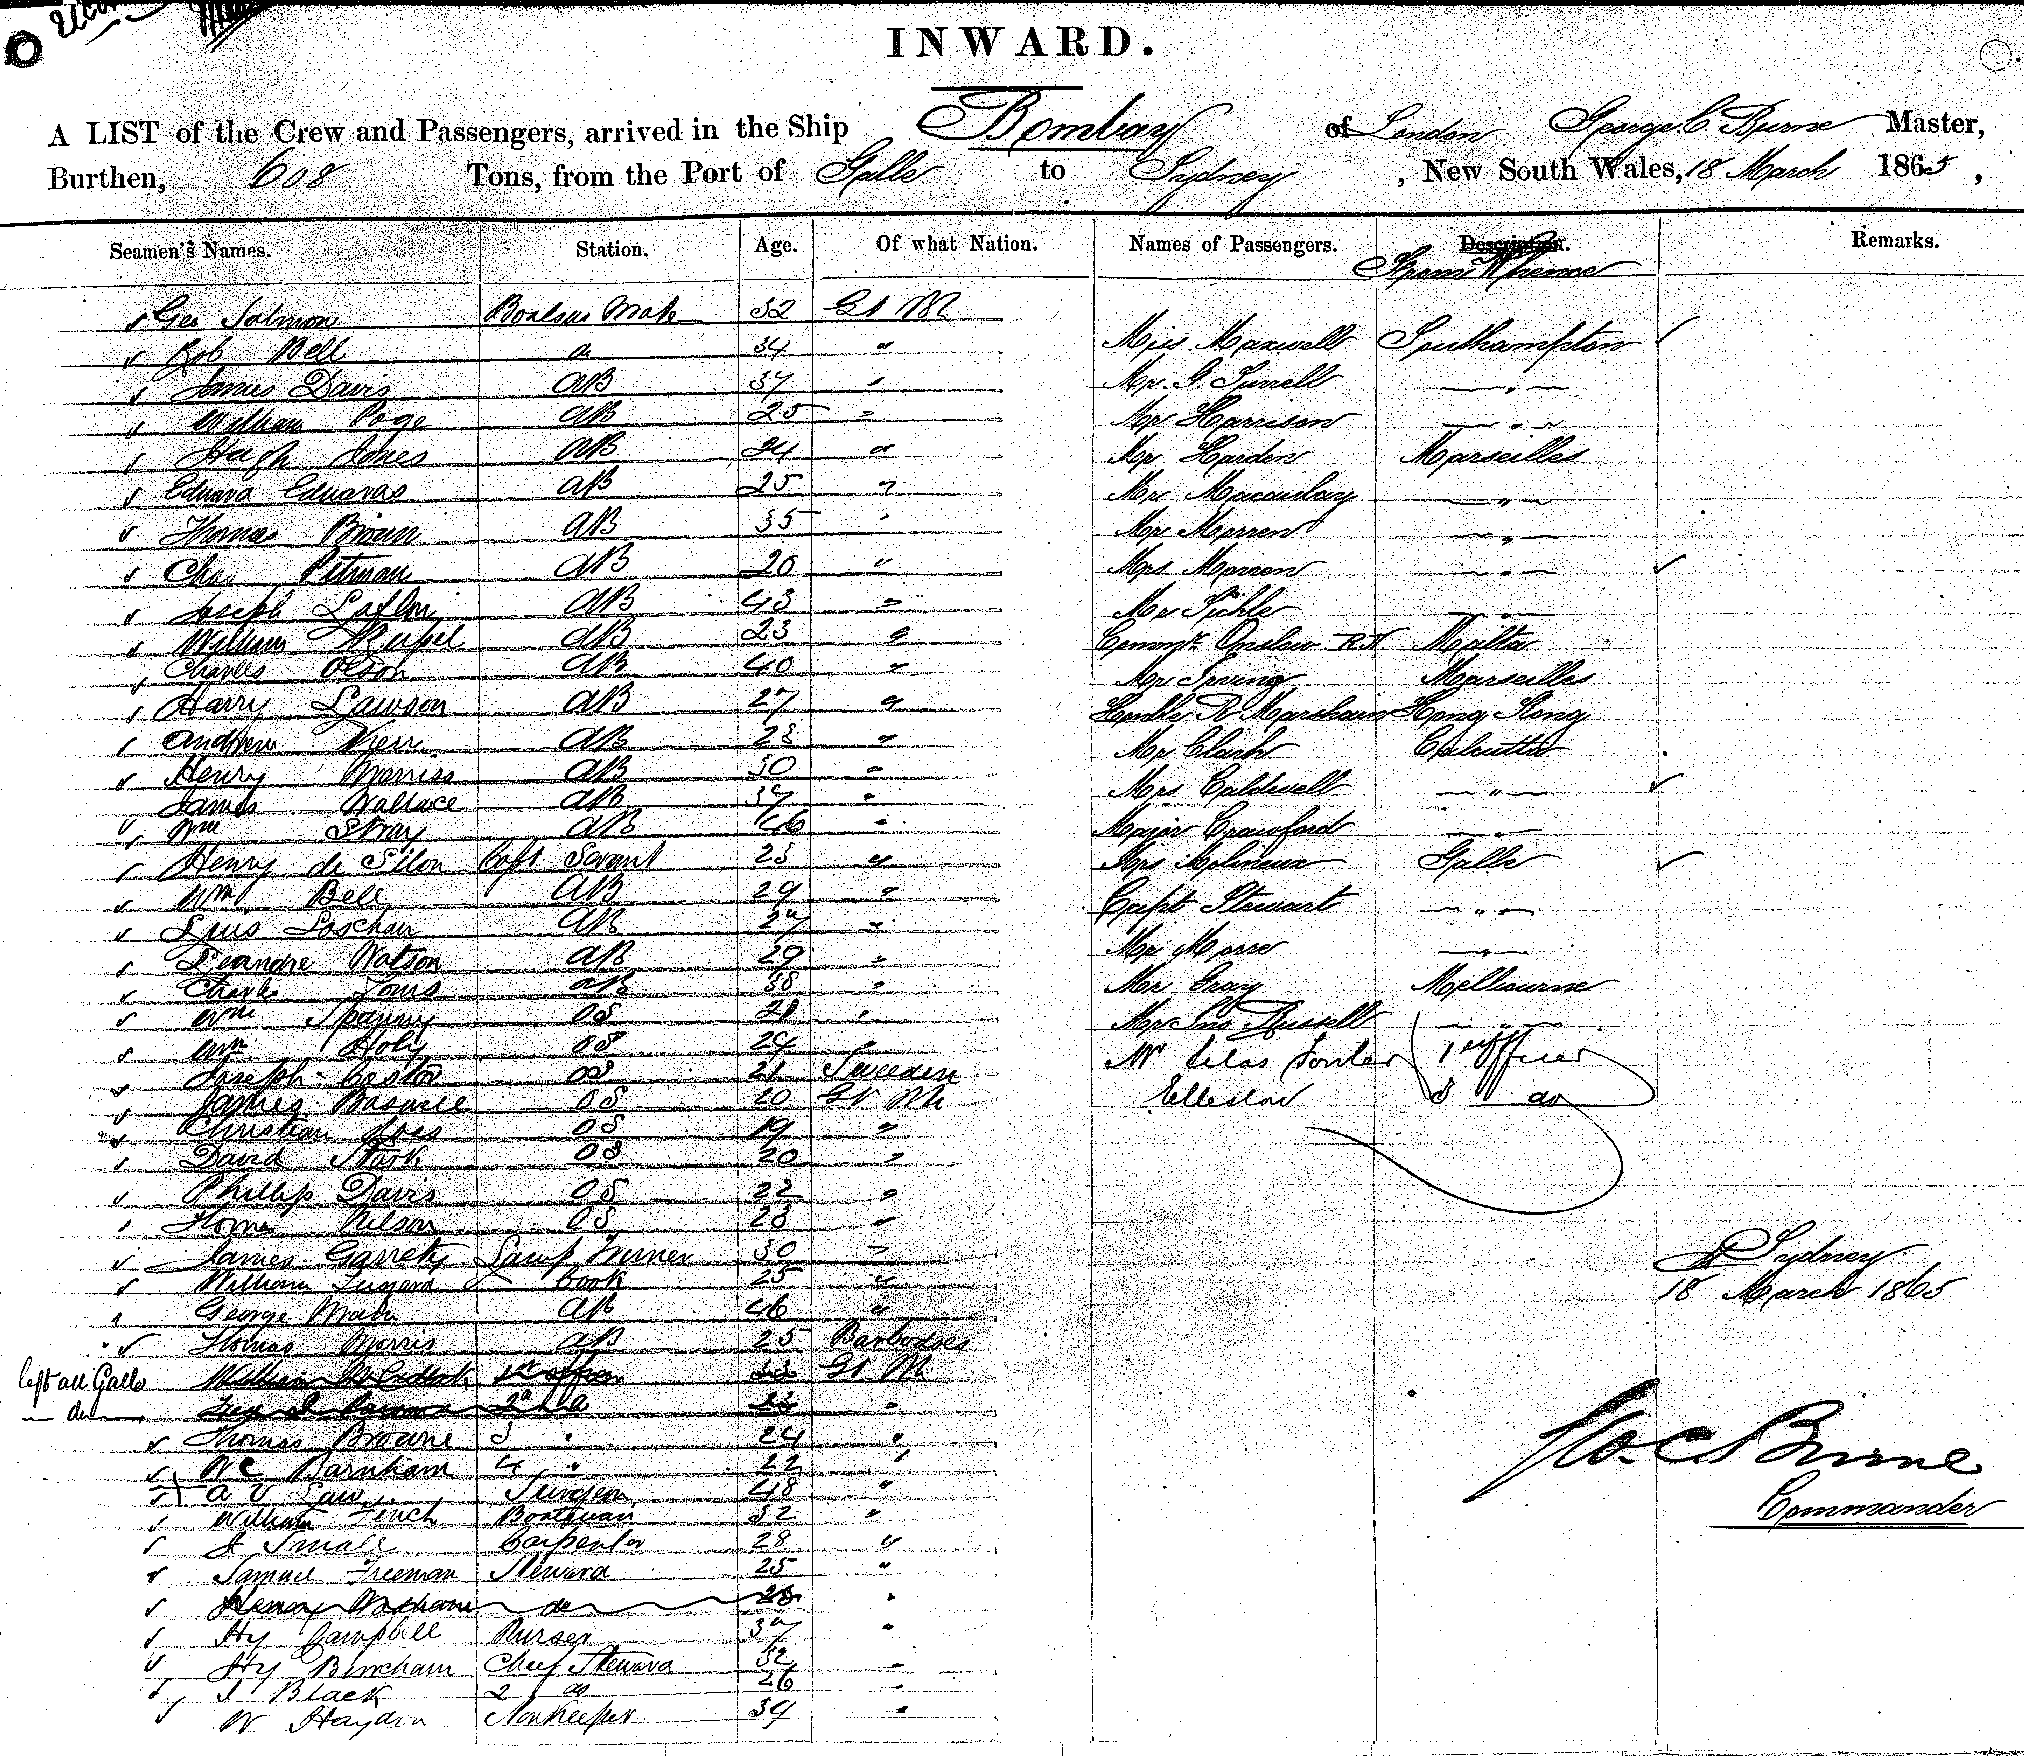 INWARD.
A LIST of the Crew and Passengers, arrived in the Ship Bombay of London George C Burne Master,
Burthen, 608 Tons, from the Port of Galle to Sydney, New South Wales, 18 March 1865,
Seamen's Names. Station. Age. Of what Nation. Names of Passengers. Description. Remarks.
From Whence
Geo Salmon Boatsns Mate 32 Gt Bt
Miss Maxwell Southampton
Rob Bell 34 "
James Davis AB 37 " Mr. G. "
William Page AB 25 " Mr Harrison "
Hugh Jones AB 24 " Mr Harden Marseilles
Edward Edwards AB 25 " Mr Macaulay "
Thomas Brown AB 35 " Mr Marren "
Chas Pitman AB 20 " Mrs Marren "
Joseph Laflin AB 43 " Mr Tickle "
William AB 23 " Onslow RN Malta
Charles Olson AB 40 " Mr Irving Marseilles
Harry Lawson AB 27 " R Marsham Hong Kong
Andrew Kerr AB 23 " Mr Clark Calcutta
Henry Morriss AB 30 " Mrs Caldwell "
James Wallace AB 37 "
Wm Stray AB 46 " Major Crawford "
Henry de Sllon Capt Servant 23 " Mrs Molineux Galle
Wm Bell AB 29 " Capt Stewart "
Louis Loschan AB 27 " Mr Morse "
Leandre Watson AB 29 "
Charles AB 38 " Mr Gray Melbourne
Wm OS 21 " Mr Russell "
Wm Holy OS 24 " Mr Silas Fowler 1st Officer
Joseph Coster OS 21 Sweden
James OS 20 Gt Bt Elleslow 3 do
Christian OS 19 "
David Stook OS 20 "
Phillip Davis OS 22 "
Thomas Nilson OS 28 "
James Garrety Lamp Trimmer 30 "
William Cook 25 "
At Sydney
18 March 1865
George AB 46 "
Thomas Morris AB 25 Barbadoes
left at Galle William 1st Officer 33 Gt Bt
do 2d "
Thomas Browne 3 " 24 "
W C Barnham 4 " 22 "
A V Law Surgeon 48 "
Geo. C Burne
William Finch Boatswain 32 "
Commander
J Smale Carpenter 28 "
Samuel Freeman Steward 25 "
Henry do 28 "
Hy Campbell Purser 37 "
Hy Bincham Chief Steward 32 "
J Black 2 do 26 "
W Haydin 39 "